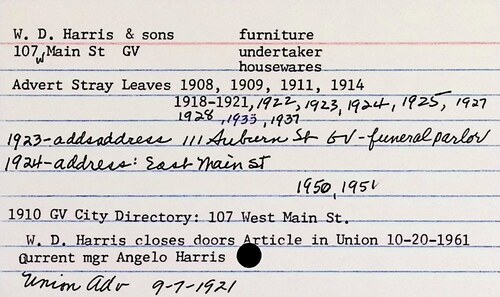 W. D. Harris & sons furniture
107 W Main St GV undertaker
housewares
Advert Stray Leaves 1908, 1909, 1911, 1914
1918-1921, 1922, 1923, 1924, 1925, 1927
1928, 1933, 1937
1923-addsaddress 111 Auburn St GV-funeral parlor
1924-address: East Main St
1950, 1951
1910 GV City Directory: 107 West Main St.
W. D. Harris closes doors Article in Union 10-20-1961
Current mgr Angelo Harris
Union Adv 9-7-1921